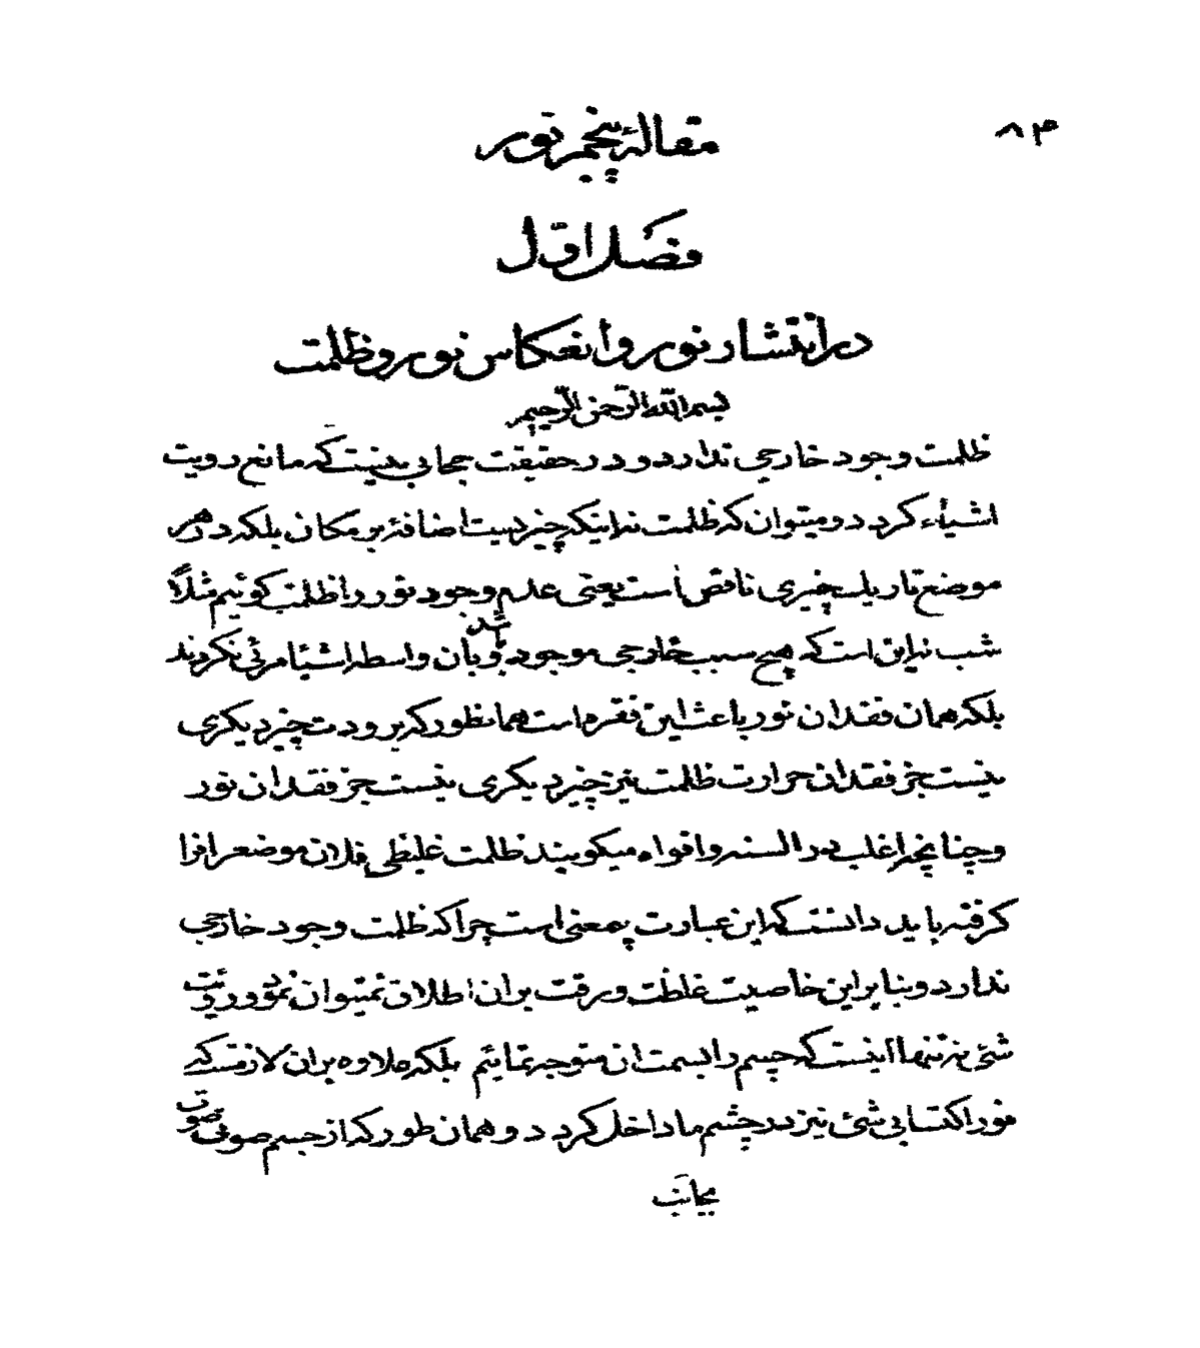 ۸۴
مقالهٔ پنجم نور
فصل اول
در انتشار نور و انعکاس نور و ظلمت
بسم الله الرحمن الرحیم
ظلمت وجود خارجی ندارد و در حقیقت حجابی نیست که مانع رویت
اشیاء کردد و میتوان که ظلمت نه اینکه چیزیست اضافهٔ بر مکان بلکه در هر
موضع تاریک چیزی ناقص است یعنی عدم وجود نور را ظلمت کوئیم مثلاً
شب نه این است که هیچ سبب خارجی موجود شده و بان واسطه اشیا مرئی نکردند
بلکه همان فقدان نور باعث این فقره است همانطور که برودت چیز دیکری
نیست جز فقدان حرارت ظلمت نیز چیز دیکری نیست جز فقدان نور
و چنانچه اغلب در السنه و افواه میکویند ظلمت غلیظی فلان موضع را فرا
کرفته باید دانست که این عبارت بیمعنی است چرا که ظلمت وجود خارجی
ندارد و بنابراین خاصیت غلظت و رقت بران اطلاق نمیتوان نمود و رویت
شئ نه تنها اینست که چشم را بسمت ان متوجه نمائیم بلکه علاوه بران لازمست که
نور اکتسابی شئ نیز در چشم ما داخل کردد و همان طور که از جسم صوتی صوت
بجانب